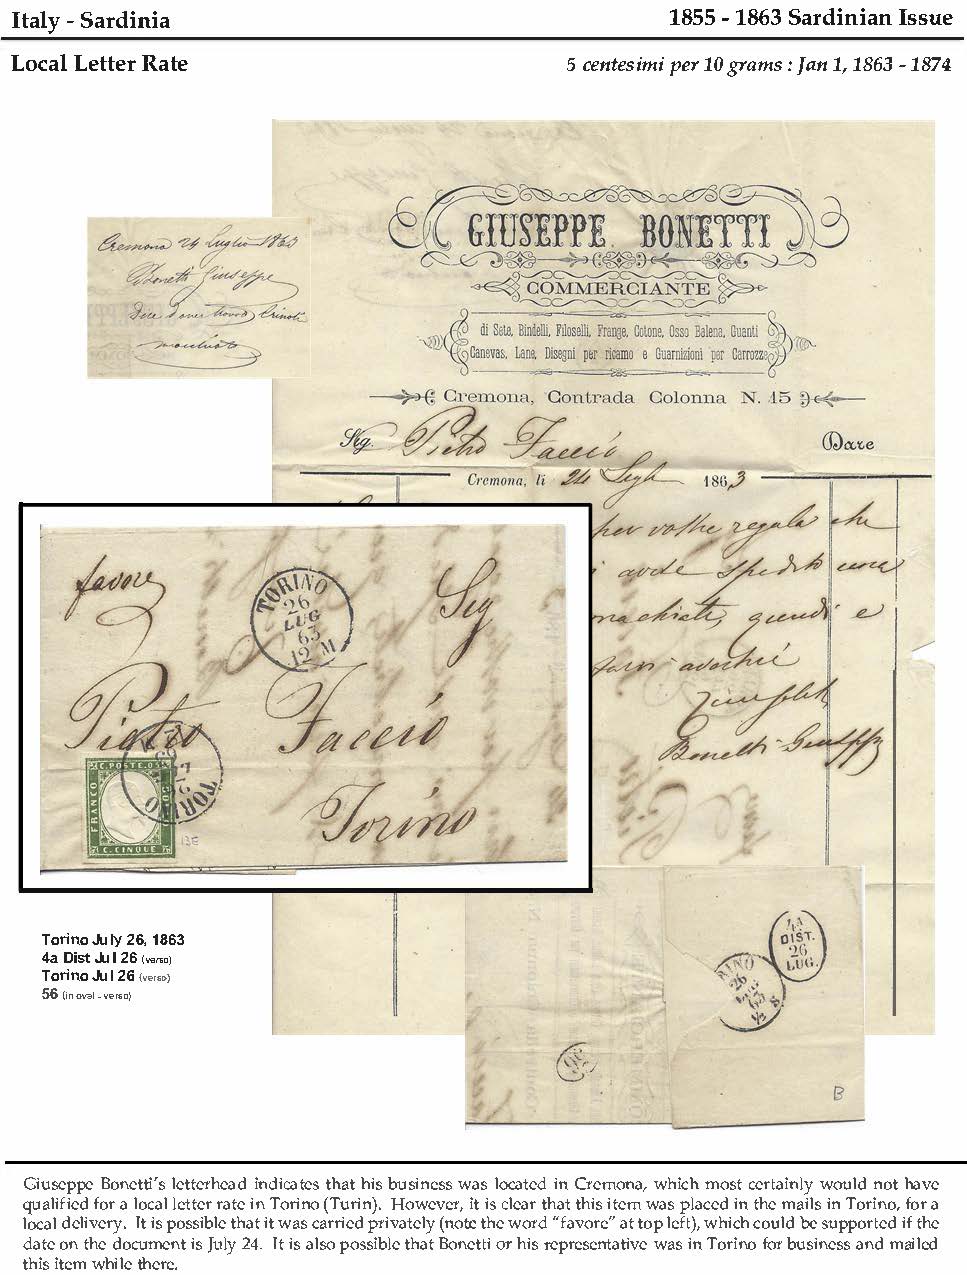 Italy - Sardinia
1855 - 1863 Sardinian Issue
Local Letter Rate
5 centesimi per 10 grams : Jan 1, 1863 - 1874
GIUSEPPE BONETTI
COMMERCIANTE
di Sete, Bindelli, Filoselli, Frange, Cotone, Osso Balena, Guanti
Canevas, Lane, Disegni per ricamo e Guarnizioni per Carrozze
Cremona, Contrada Colonna N. 15
Sig. Pietro Faccio
Dare
Cremona, li 24 Lugl 1863
per vostra regola che
spedito una
quindi e
Bonetti Giuseppe
Cremona 24 Luglio 1863
Bonetti Giuseppe
Dice d'aver trovato Crinoli
macchiato
favore
TORINO
26
LUG
63
12 M
Sig
Pietro Faccio
Torino
TORINO
C. POSTE. 05
FRANCO
C. CINQUE
13E
Torino July 26, 1863
4a Dist Jul 26 (verso)
Torino Jul 26 (verso)
56 (in oval - verso)
4A
DIST.
26
LUG.
RINO
26
LUG
63
S
56
B
Giuseppe Bonetti's letterhead indicates that his business was located in Cremona, which most certainly would not have
qualified for a local letter rate in Torino (Turin). However, it is clear that this item was placed in the mails in Torino, for a
local delivery. It is possible that it was carried privately (note the word "favore" at top left), which could be supported if the
date on the document is July 24. It is also possible that Bonetti or his representative was in Torino for business and mailed
this item while there.